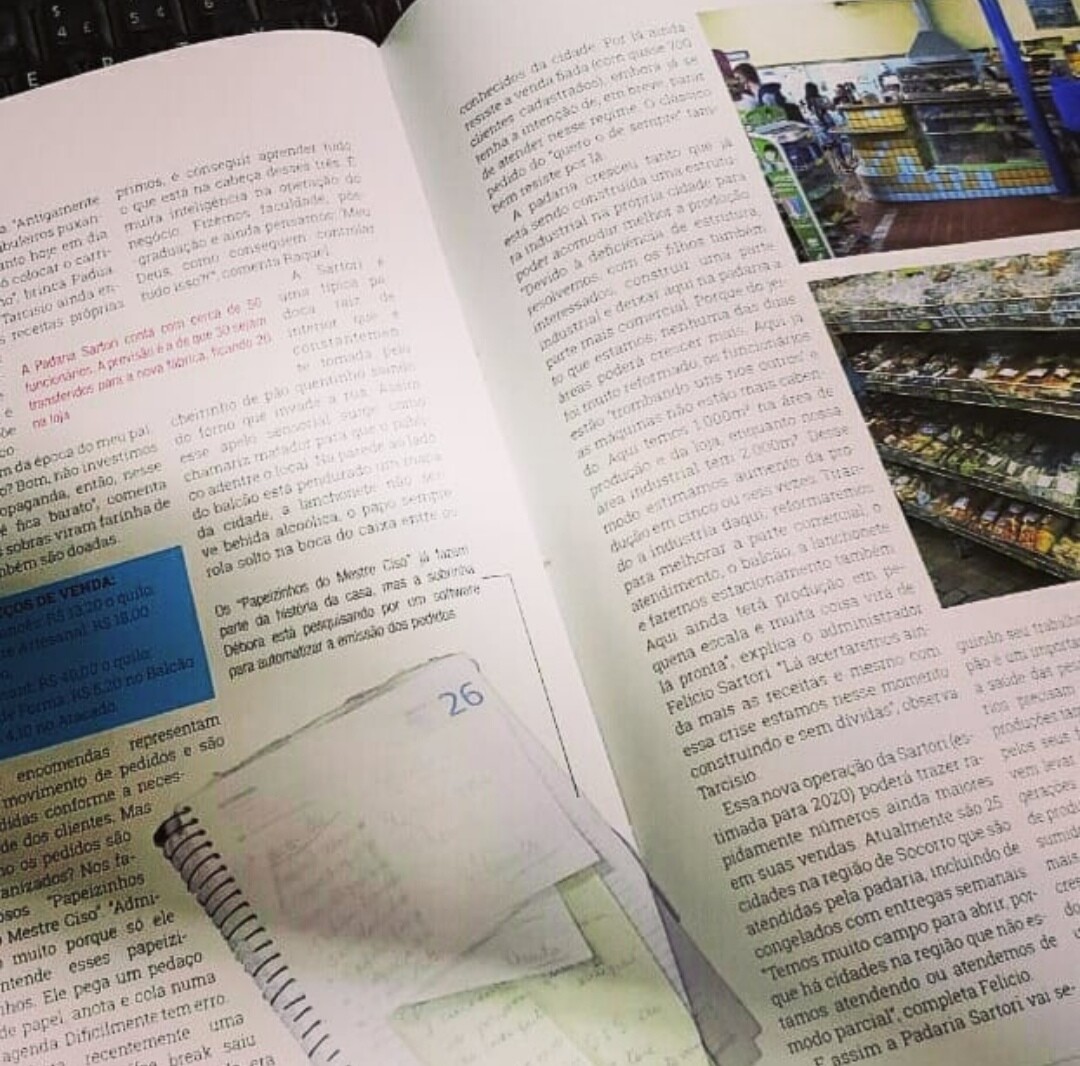 a "Antigamente
abuleiros puxan-
anto hoje em dia
ó colocar o carri-
ho", brinca Padua.
Tarcisio ainda en-
s receitas próprias
é
m da época do meu pai.
o? Bom, não investimos
opaganda, então, nesse
é fica barato", comenta
s sobras viram farinha de
mbém são doadas.
ÇOS DE VENDA:
R$ 13,20 o quilo;
Artesanal: R$ 18,00
R$ 40,00 o quilo;
de Forma: R$ 5,20 no Balcão
4,10 no Atacado.
encomendas representam
movimento de pedidos e são
didas conforme a neces-
de dos clientes. Mas
mo os pedidos são
anizados? Nos fa-
osos "Papeizinhos
o Mestre Ciso". "Admi-
o muito porque só ele
ntende esses papeizi-
nhos. Ele pega um pedaço
de papel, anota e cola numa
agenda. Dificilmente tem erro.
recentemente uma
break saiu
era
primos, é conseguir aprender tudo
o que está na cabeça desses três. É
muita inteligência na operação do
negócio. Fizemos faculdade, pós-
graduação e ainda pensamos: 'Meu
Deus, como conseguem controlar
tudo isso?!'", comenta Raquel.
A Padaria Sartori conta com cerca de 50
funcionários. A previsão é a de que 30 sejam
transferidos para a nova fábrica, ficando 20
na loja
A Sartori é
uma típica pa-
doca raiz de
interior que é
constantemen-
te tomada pelo
cheirinho de pão quentinho saindo
do forno que invade a rua. Assim
esse apelo sensorial surge como
chamariz matador para que o públi-
co adentre o local. Na parede ao lado
do balcão está pendurado um mapa
da cidade, a lanchonete não ser-
ve bebida alcoólica, o papo sempre
rola solto na boca do caixa entre os
Os "Papeizinhos do Mestre Ciso" já fazem
parte da história da casa, mas a sobrinha
Débora está pesquisando por um software
para automatizar a emissão dos pedidos
26
conhecidos da cidade. Por lá ainda
resiste a venda fiada (com quase 700
clientes cadastrados), embora já se
tenha a intenção de, em breve, parar
de atender nesse regime. O clássico
pedido do "quero o de sempre" tam-
bém resiste por lá.
A padaria cresceu tanto que já
está sendo construída uma estrutu-
ra industrial na própria cidade para
poder acomodar melhor a produção.
"Devido à deficiência de estrutura,
resolvemos, com os filhos também
interessados, construir uma parte
industrial e deixar aqui na padaria a
parte mais comercial. Porque do jei-
to que estamos, nenhuma das duas
áreas poderá crescer mais. Aqui já
foi muito reformado, os funcionários
estão 'trombando uns nos outros' e
as máquinas não estão mais caben-
do. Aqui temos 1.000m² na área de
produção e da loja, enquanto nossa
área industrial tem 2.000m². Desse
modo estimamos aumento da pro-
dução em cinco ou seis vezes. Tiran-
do a indústria daqui, reformaremos
para melhorar a parte comercial, o
atendimento, o balcão, a lanchonete
e faremos estacionamento também.
Aqui ainda terá produção em pe-
quena escala e muita coisa virá de
lá pronta", explica o administrador
Felicio Sartori. "Lá acertaremos ain-
da mais as receitas e mesmo com
essa crise estamos nesse momento
construindo e sem dívidas", observa
Tarcisio.
Essa nova operação da Sartori (es-
timada para 2020) poderá trazer ra-
pidamente números ainda maiores
em suas vendas. Atualmente são 25
cidades na região de Socorro que são
atendidas pela padaria, incluindo de
congelados com entregas semanais.
"Temos muito campo para abrir, por-
que há cidades na região que não es-
tamos atendendo ou atendemos de
modo parcial", completa Felicio.
E assim a Padaria Sartori vai se-
guindo seu trabalh
pão é um importan
a saúde das pes
rios precisam
produções tam
pelos seus f
vem levar
gerações
de produ
sumid
mais
cres
do